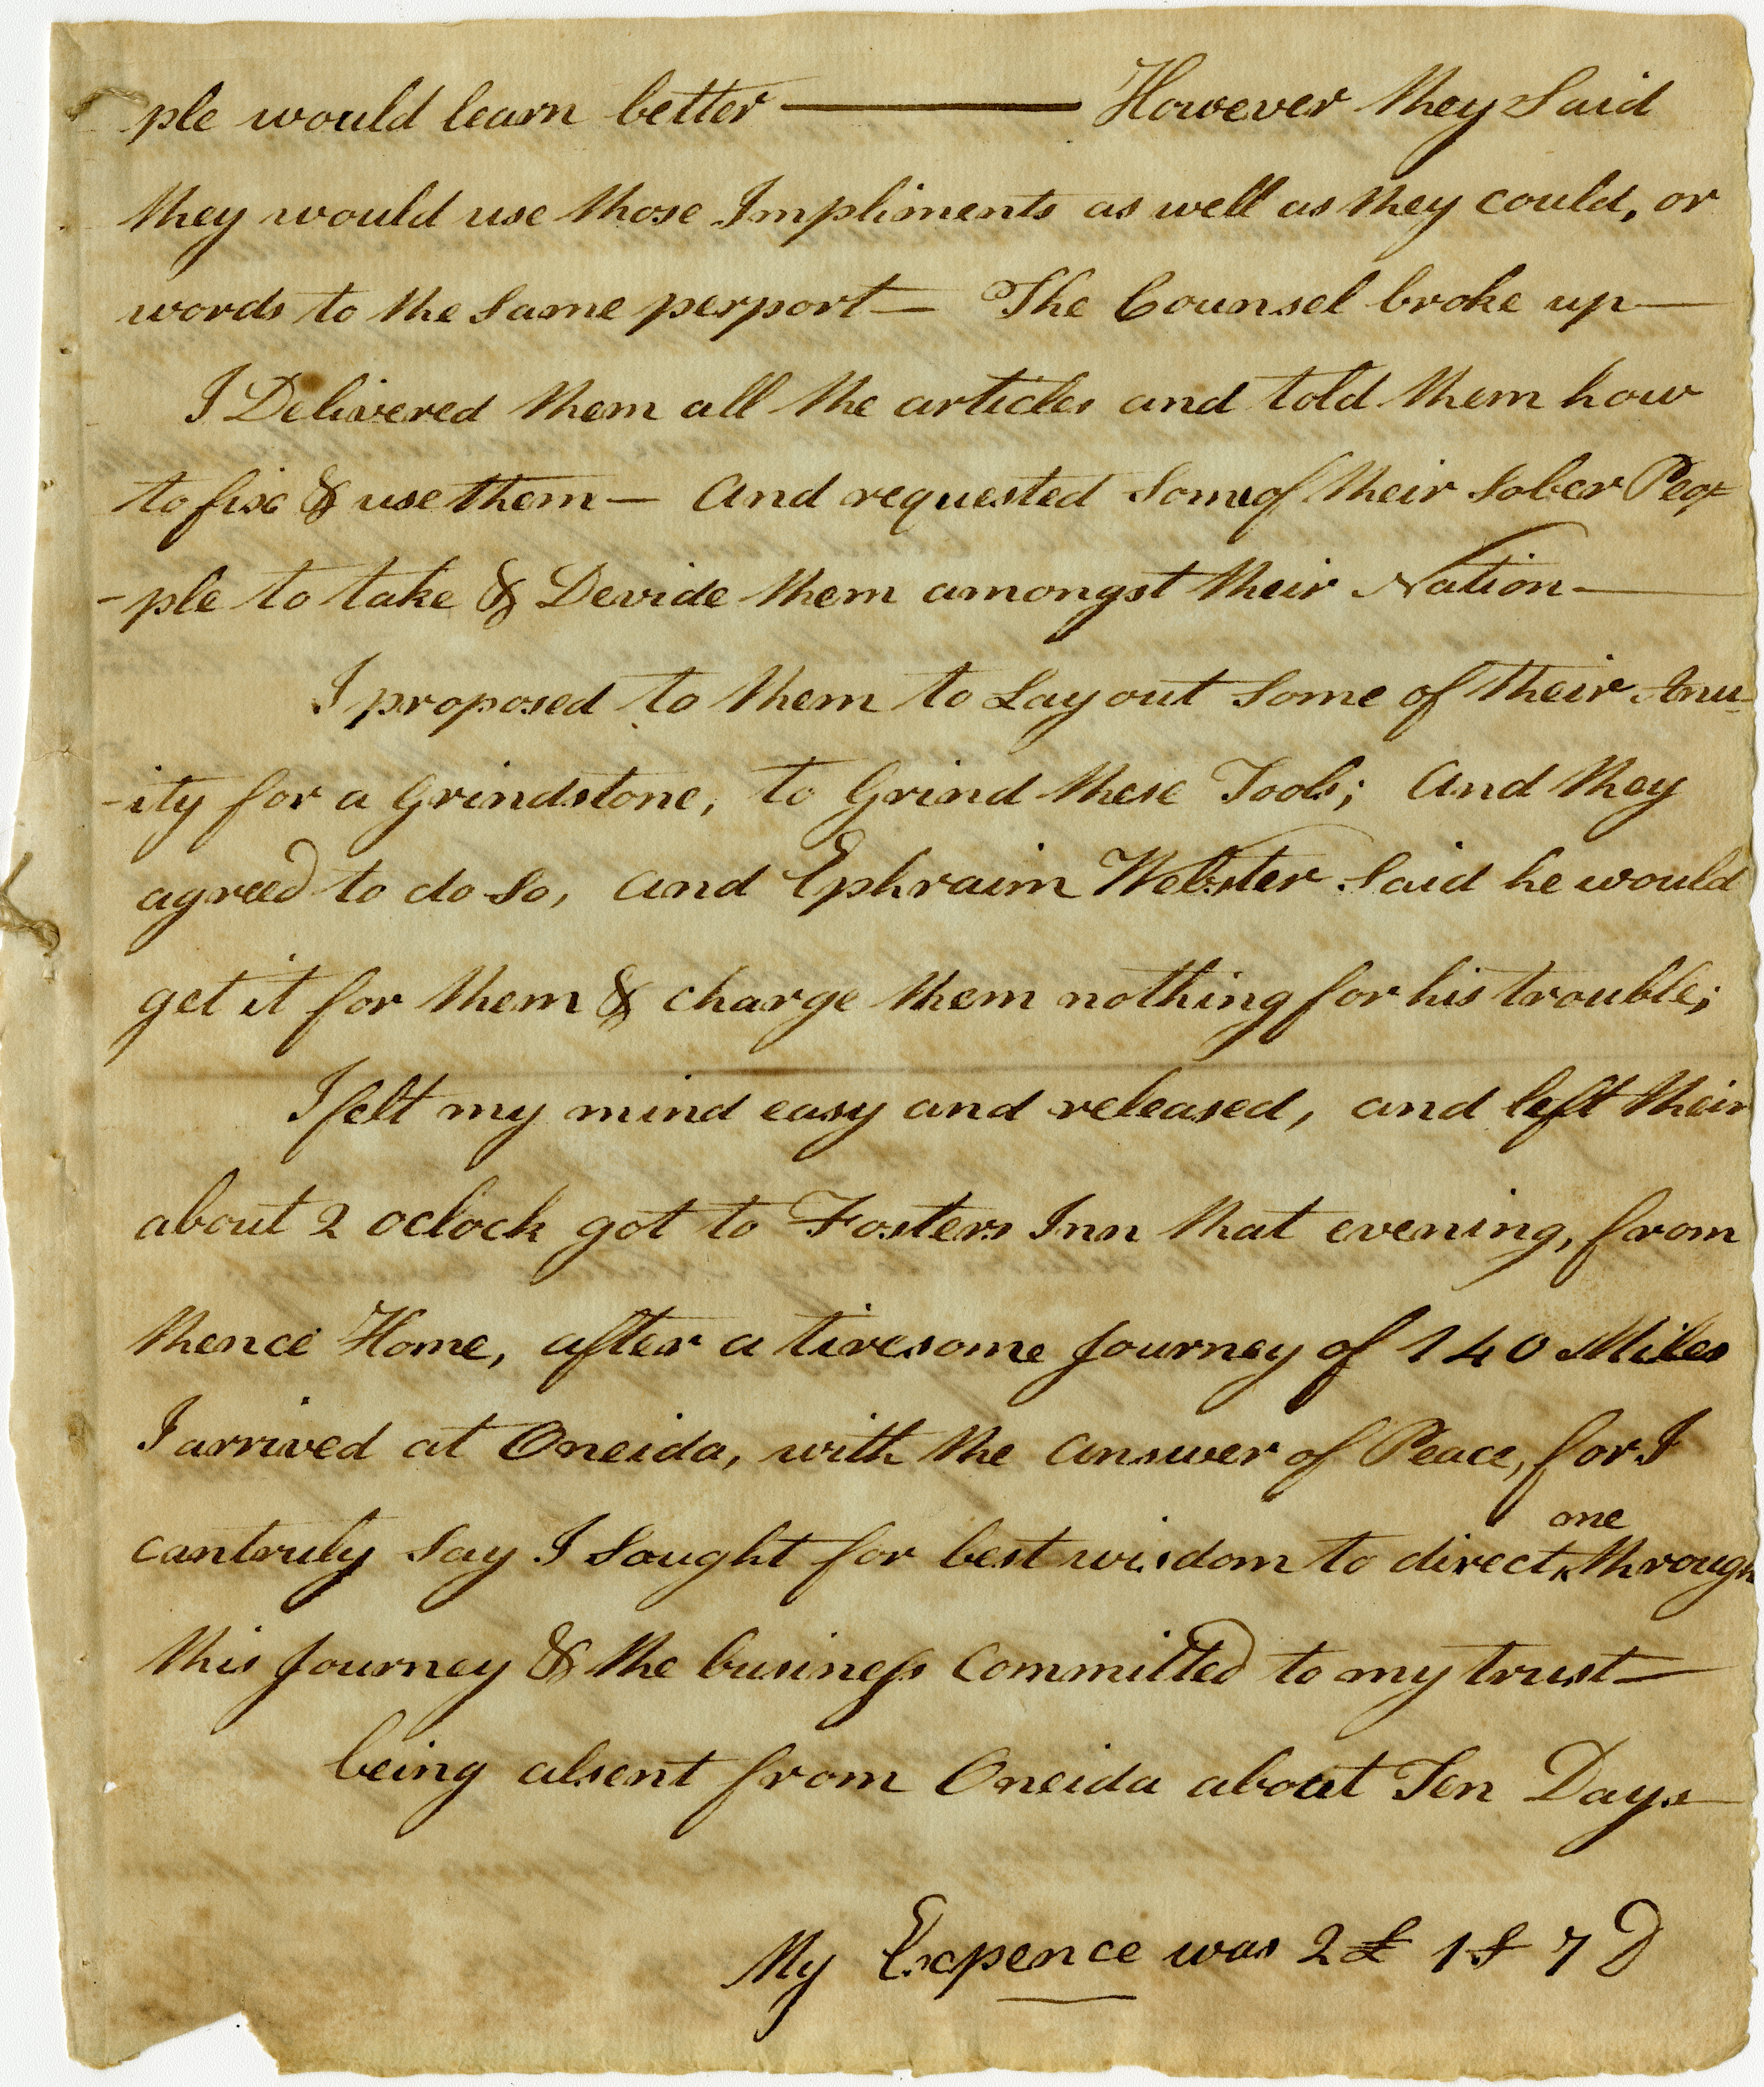 ple would learn better — However they Said
they would use those Impliments as well as they could, or
words to the Same perport — The Counsel broke up —
I Delivered them all the articles and told them how
to fix & use them — And requested Some of their Sober Peo=
-ple to take & Devide them amongst their Nation —
I proposed to them to Lay out Some of their Anu-
-ity for a Grindstone, to Grind these Tools; And they
agreed to do So, And Ephraim Webster Said he would
get it for them & charge them nothing for his trouble;
I felt my mind easy and released, and left their
about 2 oclock got to Fosters Inn that evening, from
thence Home, after a tiresome Journey of 140 Miles
I arrived at Oneida, with the Answer of Peace, for I
can truly Say I Sought for best wisdom to direct ‸me through
this Journey & the business Committed to my trust —
being absent from Oneida about Ten Days —
My Expence was 2£ 1S 7D